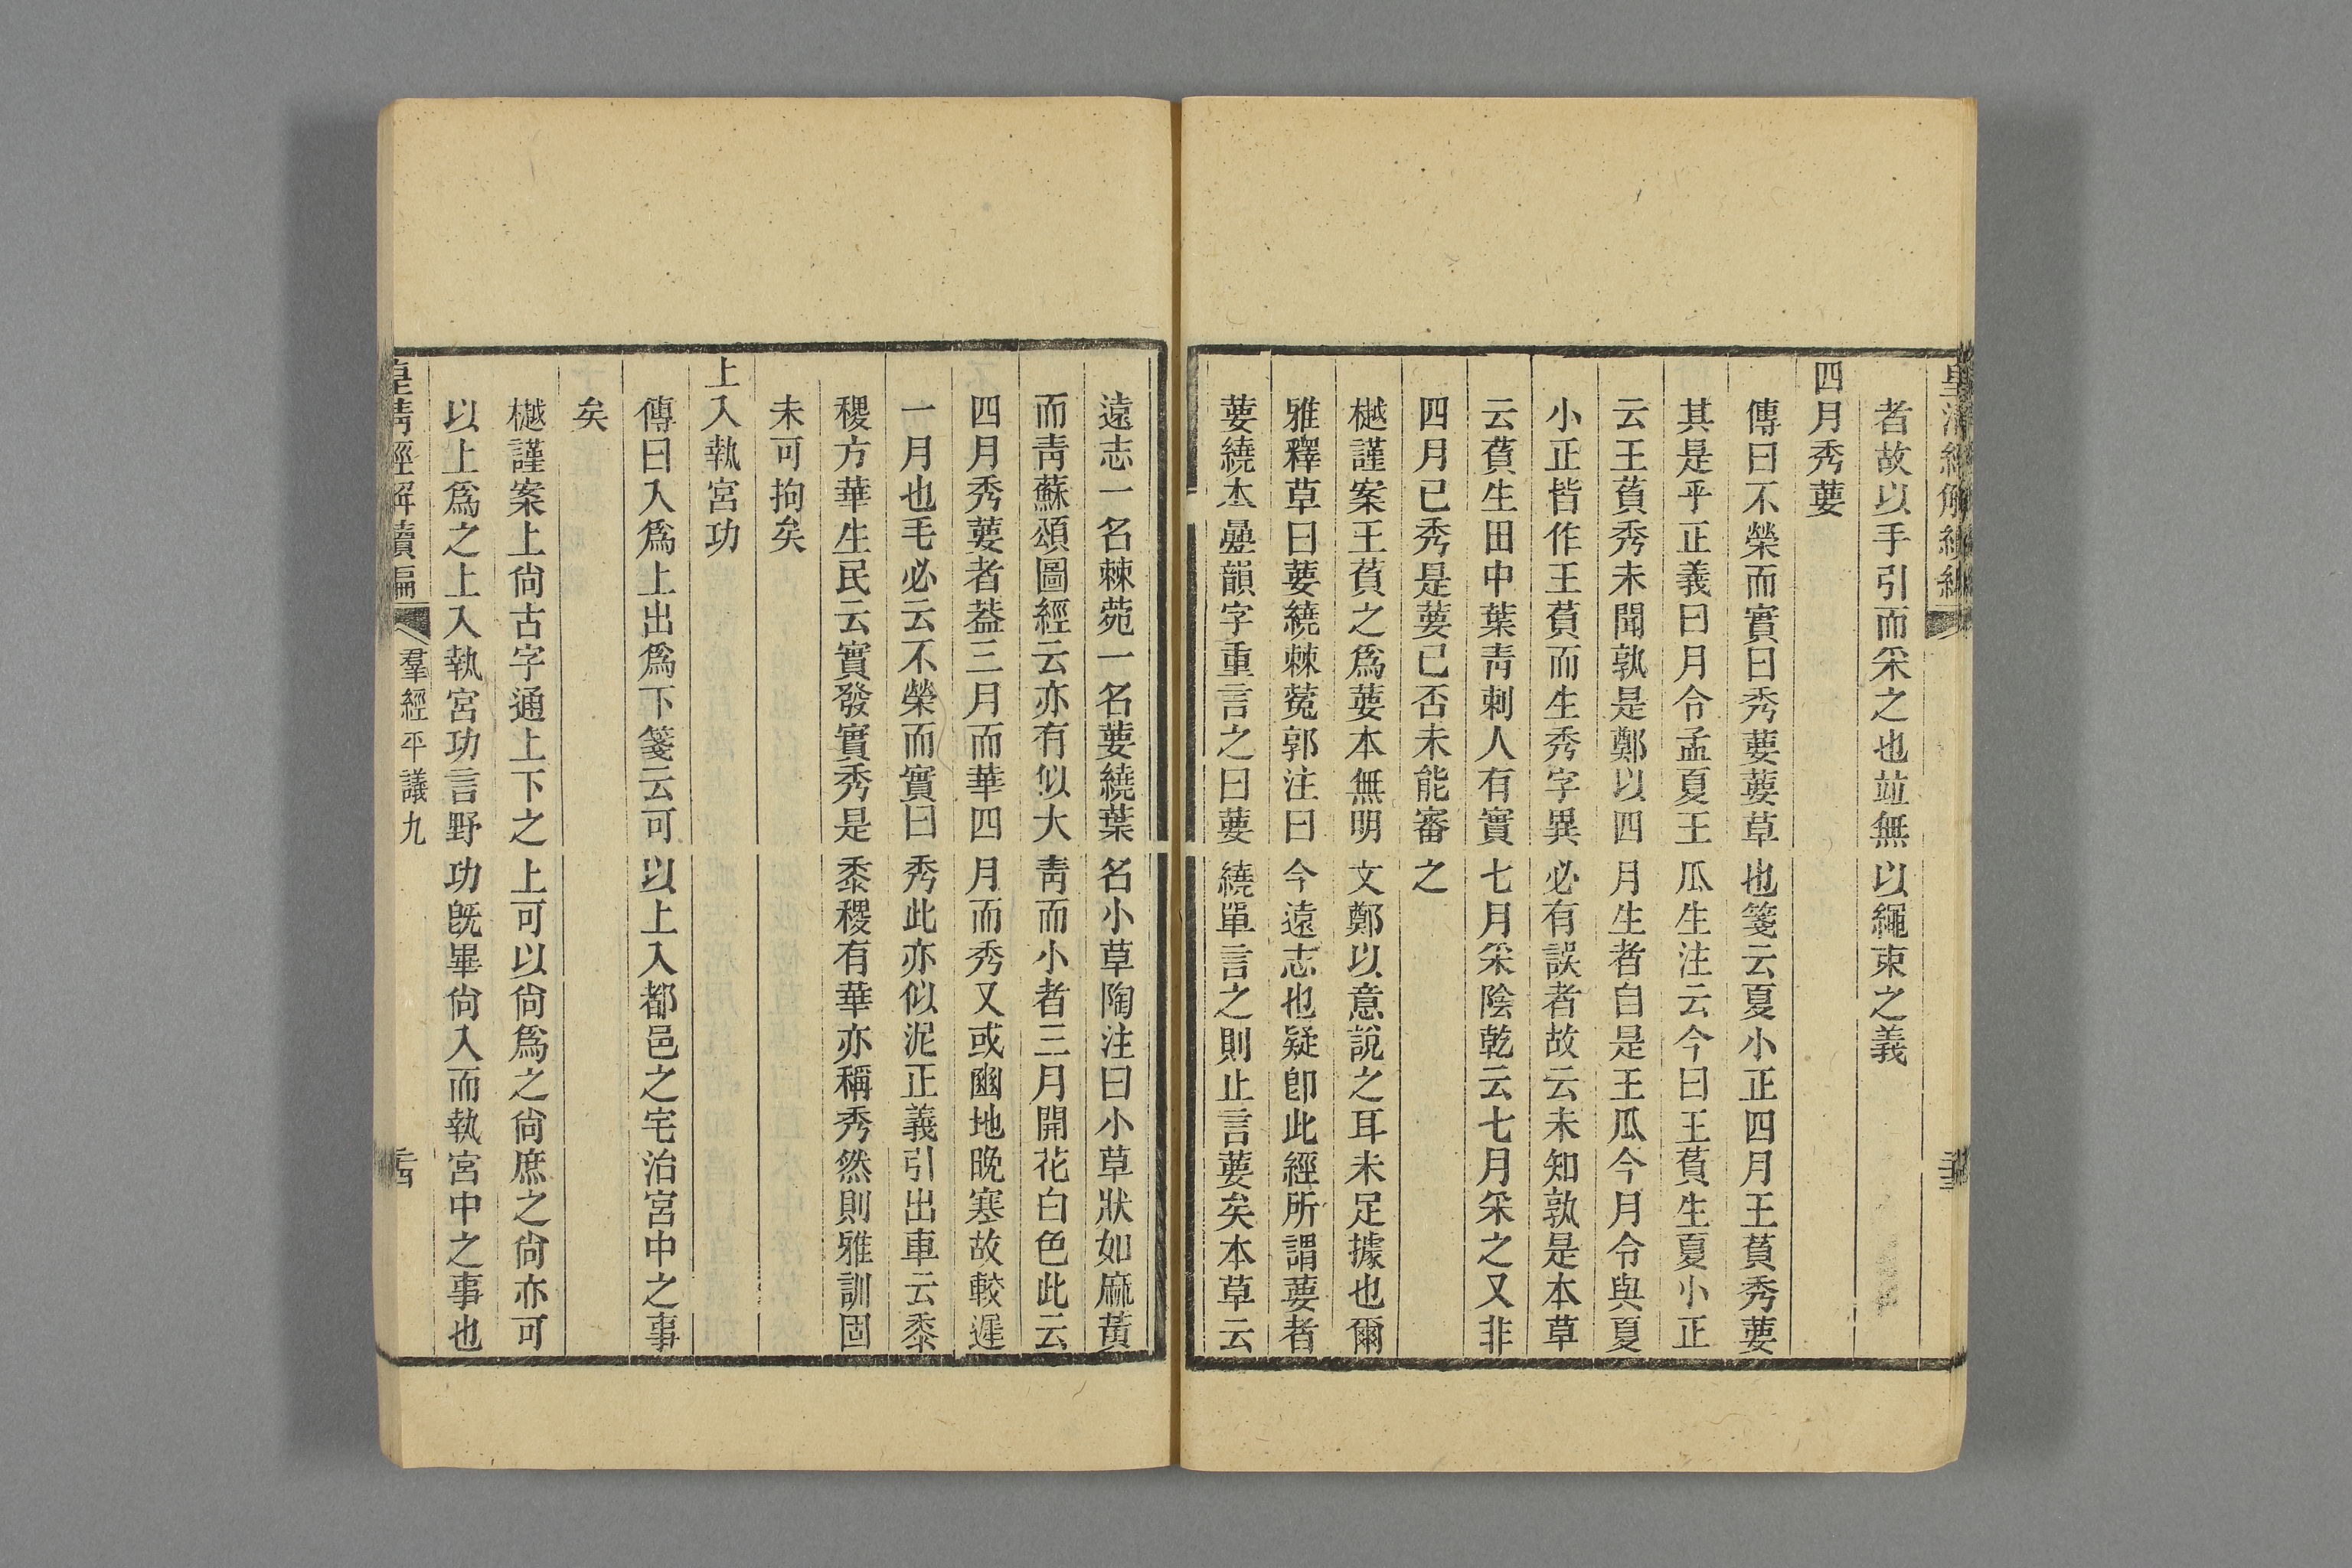 皇清經解續編
者故以手引而采之也竝無以繩束之義
四月秀葽
傳曰不榮而實曰秀葽葽草也箋云夏小正四月王萯秀葽
其是乎正義曰月令孟夏王瓜生注云今曰王萯生夏小正
云王萯秀未聞孰是鄭以四月生者自是王瓜今月令與夏
小正皆作王萯而生秀字異必有誤者故云未知孰是本草
云萯生田中葉靑刺人有實七月采陰乾云七月采之又非
四月已秀是葽已否未能審之
樾謹案王萯之爲葽本無明文鄭以意說之耳未足據也爾
雅釋草曰葽繞棘蒬郭注曰今遠志也疑卽此經所謂葽者
葽繞本疊韻字重言之曰葽繞單言之則止言葽矣本草云
遠志一名棘菀一名葽繞葉名小草陶注曰小草狀如麻黃
而靑蘇頌圖經云亦有似大靑而小者三月開花白色此云
四月秀葽者葢三月而華四月而秀又或豳地晚寒故較遲
一月也毛必云不榮而實曰秀此亦似泥正義引出車云黍
稷方華生民云實發實秀是黍稷有華亦稱秀然則雅訓固
未可拘矣
上入執宮功
傳曰入爲上出爲下箋云可以上入都邑之宅治宮中之事
矣
樾謹案上尙古字通上下之上可以尙爲之尙庶之尙亦可
以上爲之上入執宮功言野功旣畢尙入而執宮中之事也
皇清經解續編
羣經平議九